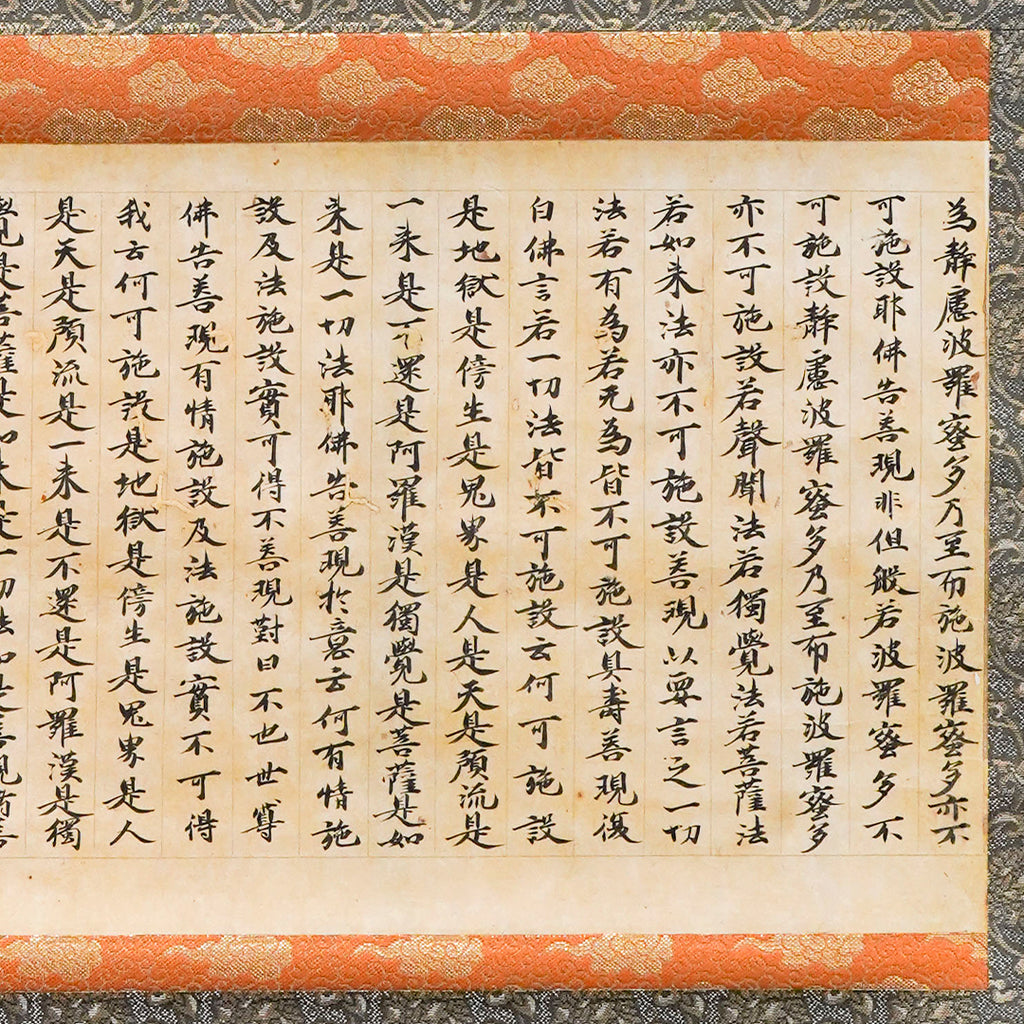 為靜慮波羅蜜多乃至布施波羅蜜多亦不
可施設耶佛告善現非但般若波羅蜜多不
可施設靜慮波羅蜜多乃至布施波羅蜜多
亦不可施設若聲聞法若獨覺法若菩薩法
若如来法亦不可施設善現以要言之一切
法若有為若无為皆不可施設具壽善現復
白佛言若一切法皆不可施設云何可施設
是地獄是傍生是鬼界是人是天是預流是
一来是不還是阿羅漢是獨覺是菩薩是如
来是一切法耶佛告善現於意云何有情施
設及法施設實可得不善現對曰不也世尊
佛告善現有情施設及法施設實不可得
我云何可施設是地獄是傍生是鬼界是人
是天是預流是一来是不還是阿羅漢是獨
覺是菩薩是如来是一切法如是善現